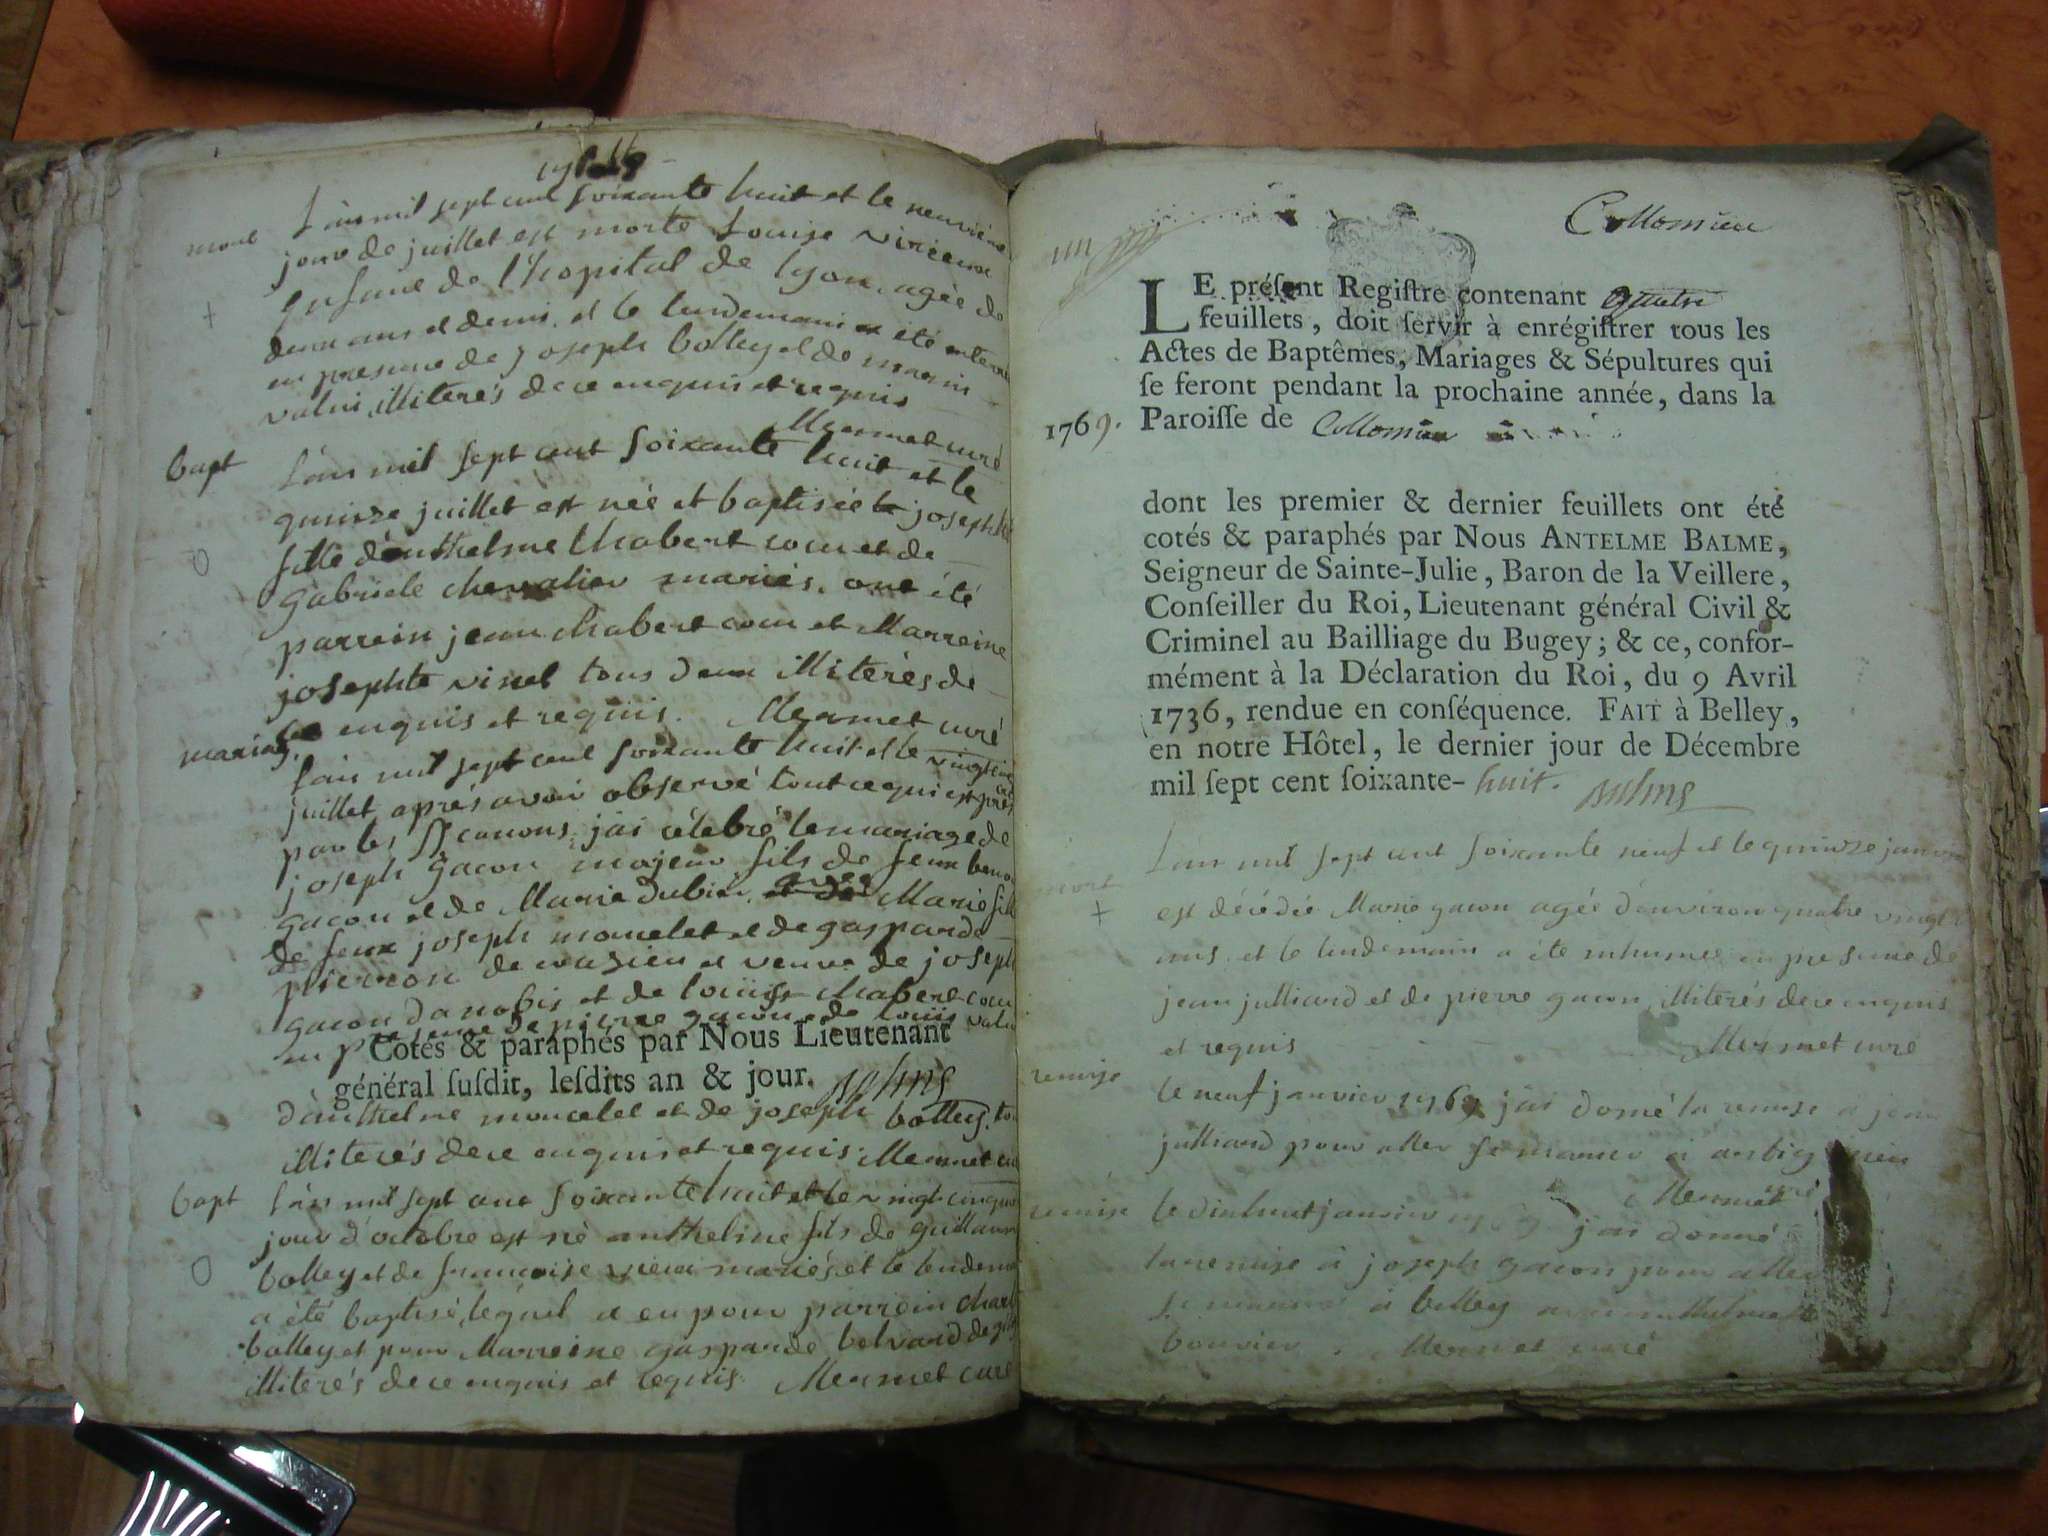 mort
L'an mil sept cent soixante huit et le neuvieme
jour de juillet est morte Louise
enfant de l'hopital de lyon, agée de
deux ans et demi, et le lendemain a été enterrée
en presence de joseph bolley et de marin
valui, illiterés de ce enquis et requis
Mermet curé
bapt
L'an mil sept cent soixante huit et le
quinze juillet est née et baptisée josephte
fille d'anthelme Chabert cour et de
gabriele chevalier mariés. ont été
parrein jean chabert cour et Marreine
josephte vinet tous deux illiterés de
ce enquis et requis. Mermet curé
mariag.
l'an mil sept cent soixante huit et le vingt
juillet, après avoir observé tout ce qui est
par les SS canons, j'ai célébré le mariage de
joseph gacon majeur fils de feux
gacon et de Marie Dubin, avec Marie fille
de feux joseph moncelet et de gasparde
pierron de et veuve de joseph
gacon d'anobis et de louise chabert cour
en presence de pierre gacon de louis valui
Cotés & paraphés par Nous Lieutenant
général susdit, lesdits an & jour.
d'anthelme moncelet et de joseph bolley, tous
illiterés de ce enquis et requis. Mermet curé
bapt
l'an mil sept cent soixante huit et le vingt cinquieme
jour d'octobre est né anthelme fils de guillaume
bolley et de francoise vieux mariés, et le lendemain
a été baptisé, lequel a eu pour parrein charles
bolley et pour Marreine gasparde belvard
illiterés de ce enquis et requis. Mermet curé
Collomieu
LE présent Registre contenant quatre
feuillets, doit servir à enrégistrer tous les
Actes de Baptêmes, Mariages & Sépultures qui
se feront pendant la prochaine année, dans la
1769. Paroisse de Collomieu
dont les premier & dernier feuillets ont été
cotés & paraphés par Nous ANTELME BALME,
Seigneur de Sainte-Julie, Baron de la Veillere,
Conseiller du Roi, Lieutenant général Civil &
Criminel au Bailliage du Bugey; & ce, confor-
mément à la Déclaration du Roi, du 9 Avril
1736, rendue en conséquence. FAIT à Belley,
en notre Hôtel, le dernier jour de Décembre
mil sept cent soixante-huit.
mort
L'an mil sept cent soixante neuf et le quinze janvier
est décédée Marie gacon agée d'environ quatre vingt
ans, et le lendemain a été inhumée en presence de
jean julliard et de pierre gacon, illiterés de ce enquis
et requis Mermet curé
remise
le neuf janvier 1769 j'ai donné la remise a jean
julliard pour aller se marier a
Mermet curé
remise
le dixhuit janvier 1769 j'ai donné
la remise a joseph gacon pour aller
se marier a belley avec
bouvier. Mermet curé